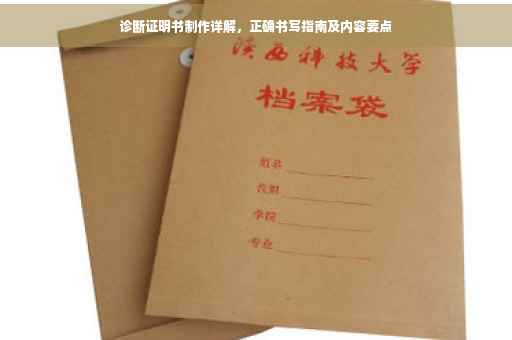 诊断证明书制作详解，正确书写指南及内容要点
陕西科技大学
档案袋
姓名
教职
学院
专业